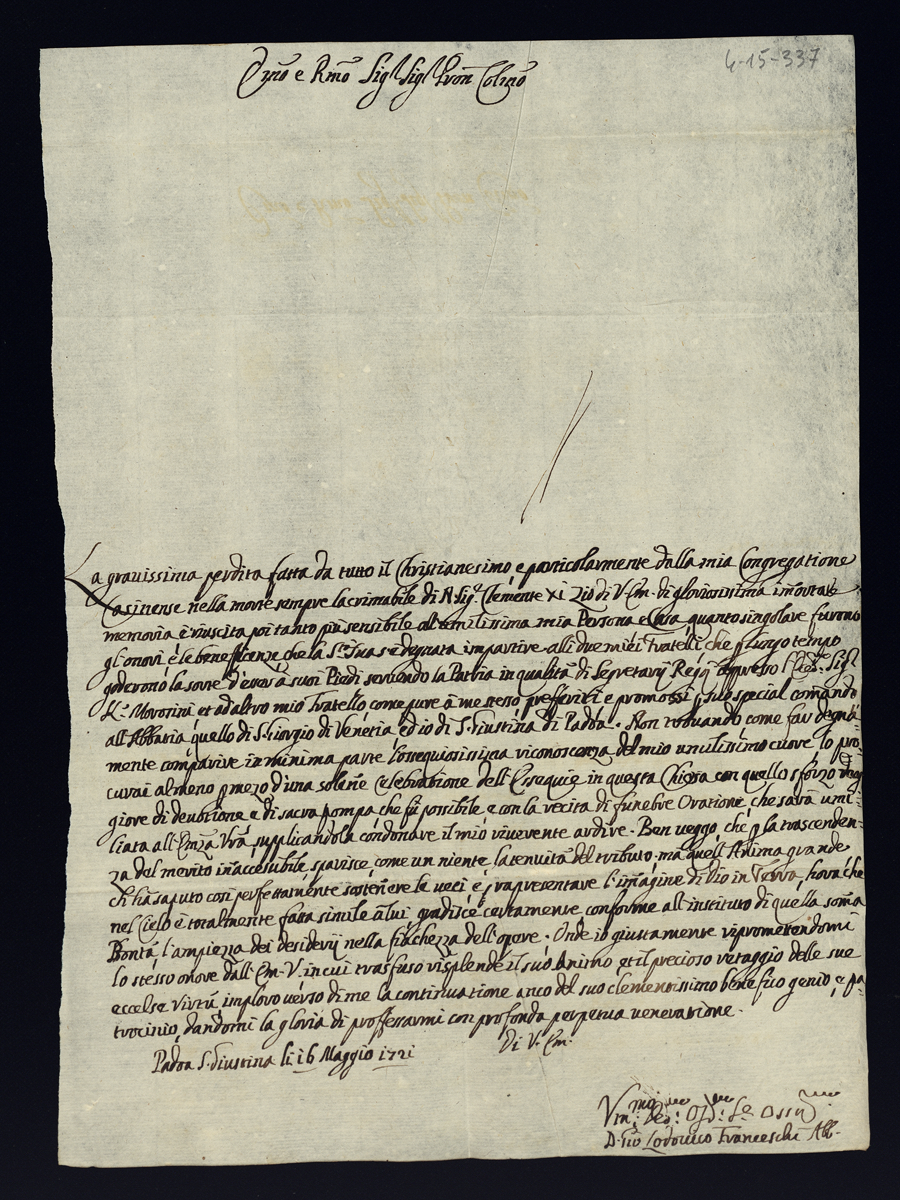 4-15-337
Emo e Rmo Sigr Sigr Pron Colmo
La gravissima perdita fatta da tutto il Christianesimo, e particolarmente dalla mia Congregatione
Casinense nella morte sempre lacrimabile di N. Sigr Clemente XI Zio di V. Em. di gloriosissima immortale
memoria è riuscita poi tanto più sensibile all'umilissima mia Persona e Casa quanto singolare furono
gli onori, e le beneficenze che la Stà Sua s'è degnata impartire alli due miei Fratelli che p lungo tempo
goderono la sorte d'esser à suoi Piedi servendo la Patria in qualità di Segretarij Regij appresso Sigr
Morosini et ad altro mio Fratello, come pure à me stesso prefferiti e promossi p suo special comando
all'Abbatia quello di S. Giorgio di Venetia ed io di S. Giustina di Padoa. Non trovando come far degna-
mente comparire in minima parte l'ossequiosissima riconoscenza del mio umilissimo cuore lo pro-
curai almeno p mezo d'una solene celebratione dell'Essequie in questa Chiesa con quello sforzo mag-
giore di devotione, e di sacra pompa che fù possibile e con la recita di funebre Oratione, che sarà umi-
liata all'Emza Vra supplicandola condonare il mio riverente ardire. Ben veggo, che p la trascenden-
za del merito inaccessibile, sparisce, come un niente la tenuità del tributo, ma quell'Anima grande
ch'hà saputo così perfettamente sostenere le veci e rapresentare l'imagine di Dio in Terra, hora che
nel Cielo è totalmente fatta simile à lui, gradisce certamente conforme all'instituto di quella soma
Bontà l'ampiezza dei desiderij nella fiachezza dell'opere. Onde io giustamente ripromettendomi
lo stesso onore dall'Em. V. in cui trasfuso risplende il suo Animo et il precioso retaggio delle sue
eccelse virtù imploro verso di me la continuatione anco del suo clementissimo benefico genio, e pa-
trocinio, dandomi la gloria di proffessarmi con profonda perpetua veneratione.
Di V. Em.
Padoa S. Giustina li 16 Maggio 1721
D. Gio Lodovico Franceschi Abb.